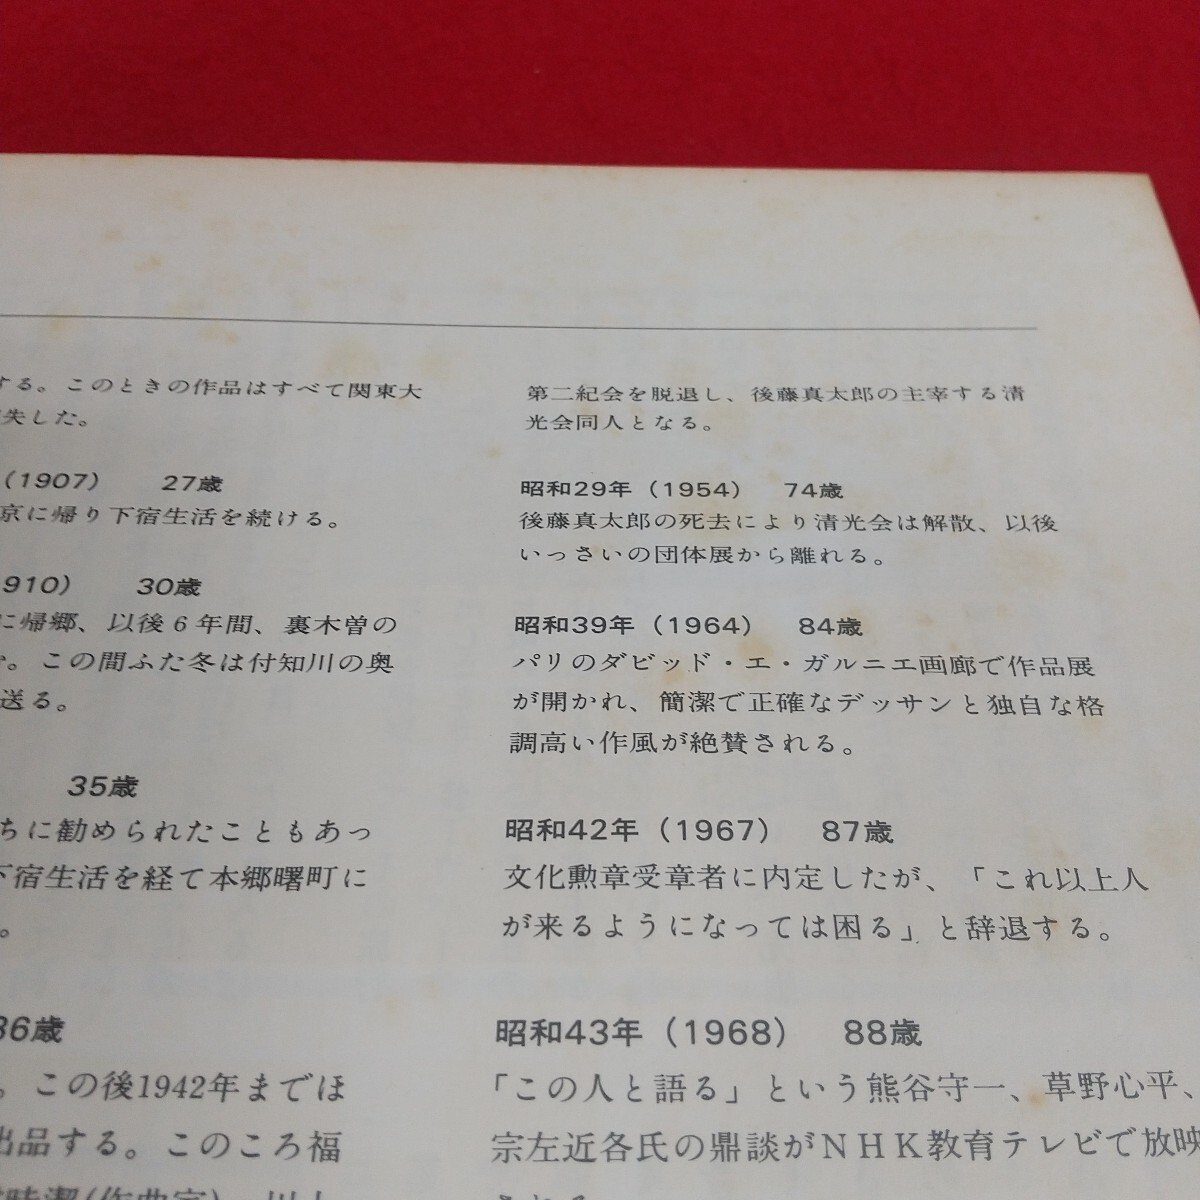 する。このときの作品はすべて関東大
失した。
(1907) 27歳
京に帰り下宿生活を続ける。
910) 30歳
に帰郷、以後6年間、裏木曽の
。この間ふた冬は付知川の奥
送る。
35歳
ちに勧められたこともあっ
下宿生活を経て本郷曙町に
。
36歳
。この後1942年までほ
出品する。このころ福
時潔(作曲家)、川上
第二紀会を脱退し、後藤真太郎の主宰する清
光会同人となる。
昭和29年(1954) 74歳
後藤真太郎の死去により清光会は解散、以後
いっさいの団体展から離れる。
昭和39年(1964) 84歳
パリのダビッド・エ・ガルニエ画廊で作品展
が開かれ、簡潔で正確なデッサンと独自な格
調高い作風が絶賛される。
昭和42年(1967) 87歳
文化勲章受章者に内定したが、「これ以上人
が来るようになっては困る」と辞退する。
昭和43年(1968) 88歳
「この人と語る」という熊谷守一、草野心平、
宗左近各氏の鼎談がNHK教育テレビで放映
される。